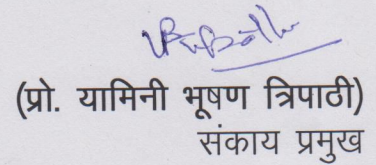 (प्रो. यामिनी भूषण त्रिपाठी)
संकाय प्रमुख